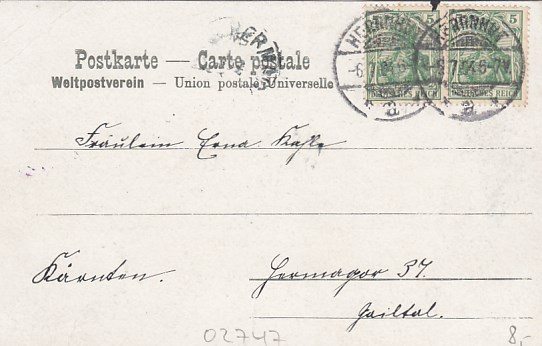 Postkarte — Carte postale
Weltpostverein — Union postale Universelle
5 5
DEUTSCHES REICH DEUTSCHES REICH
HERRNHUT
a a
Fräulein Erna Kahle
Kärnten. Hermagor 37.
Gailtal.
02747 8,-